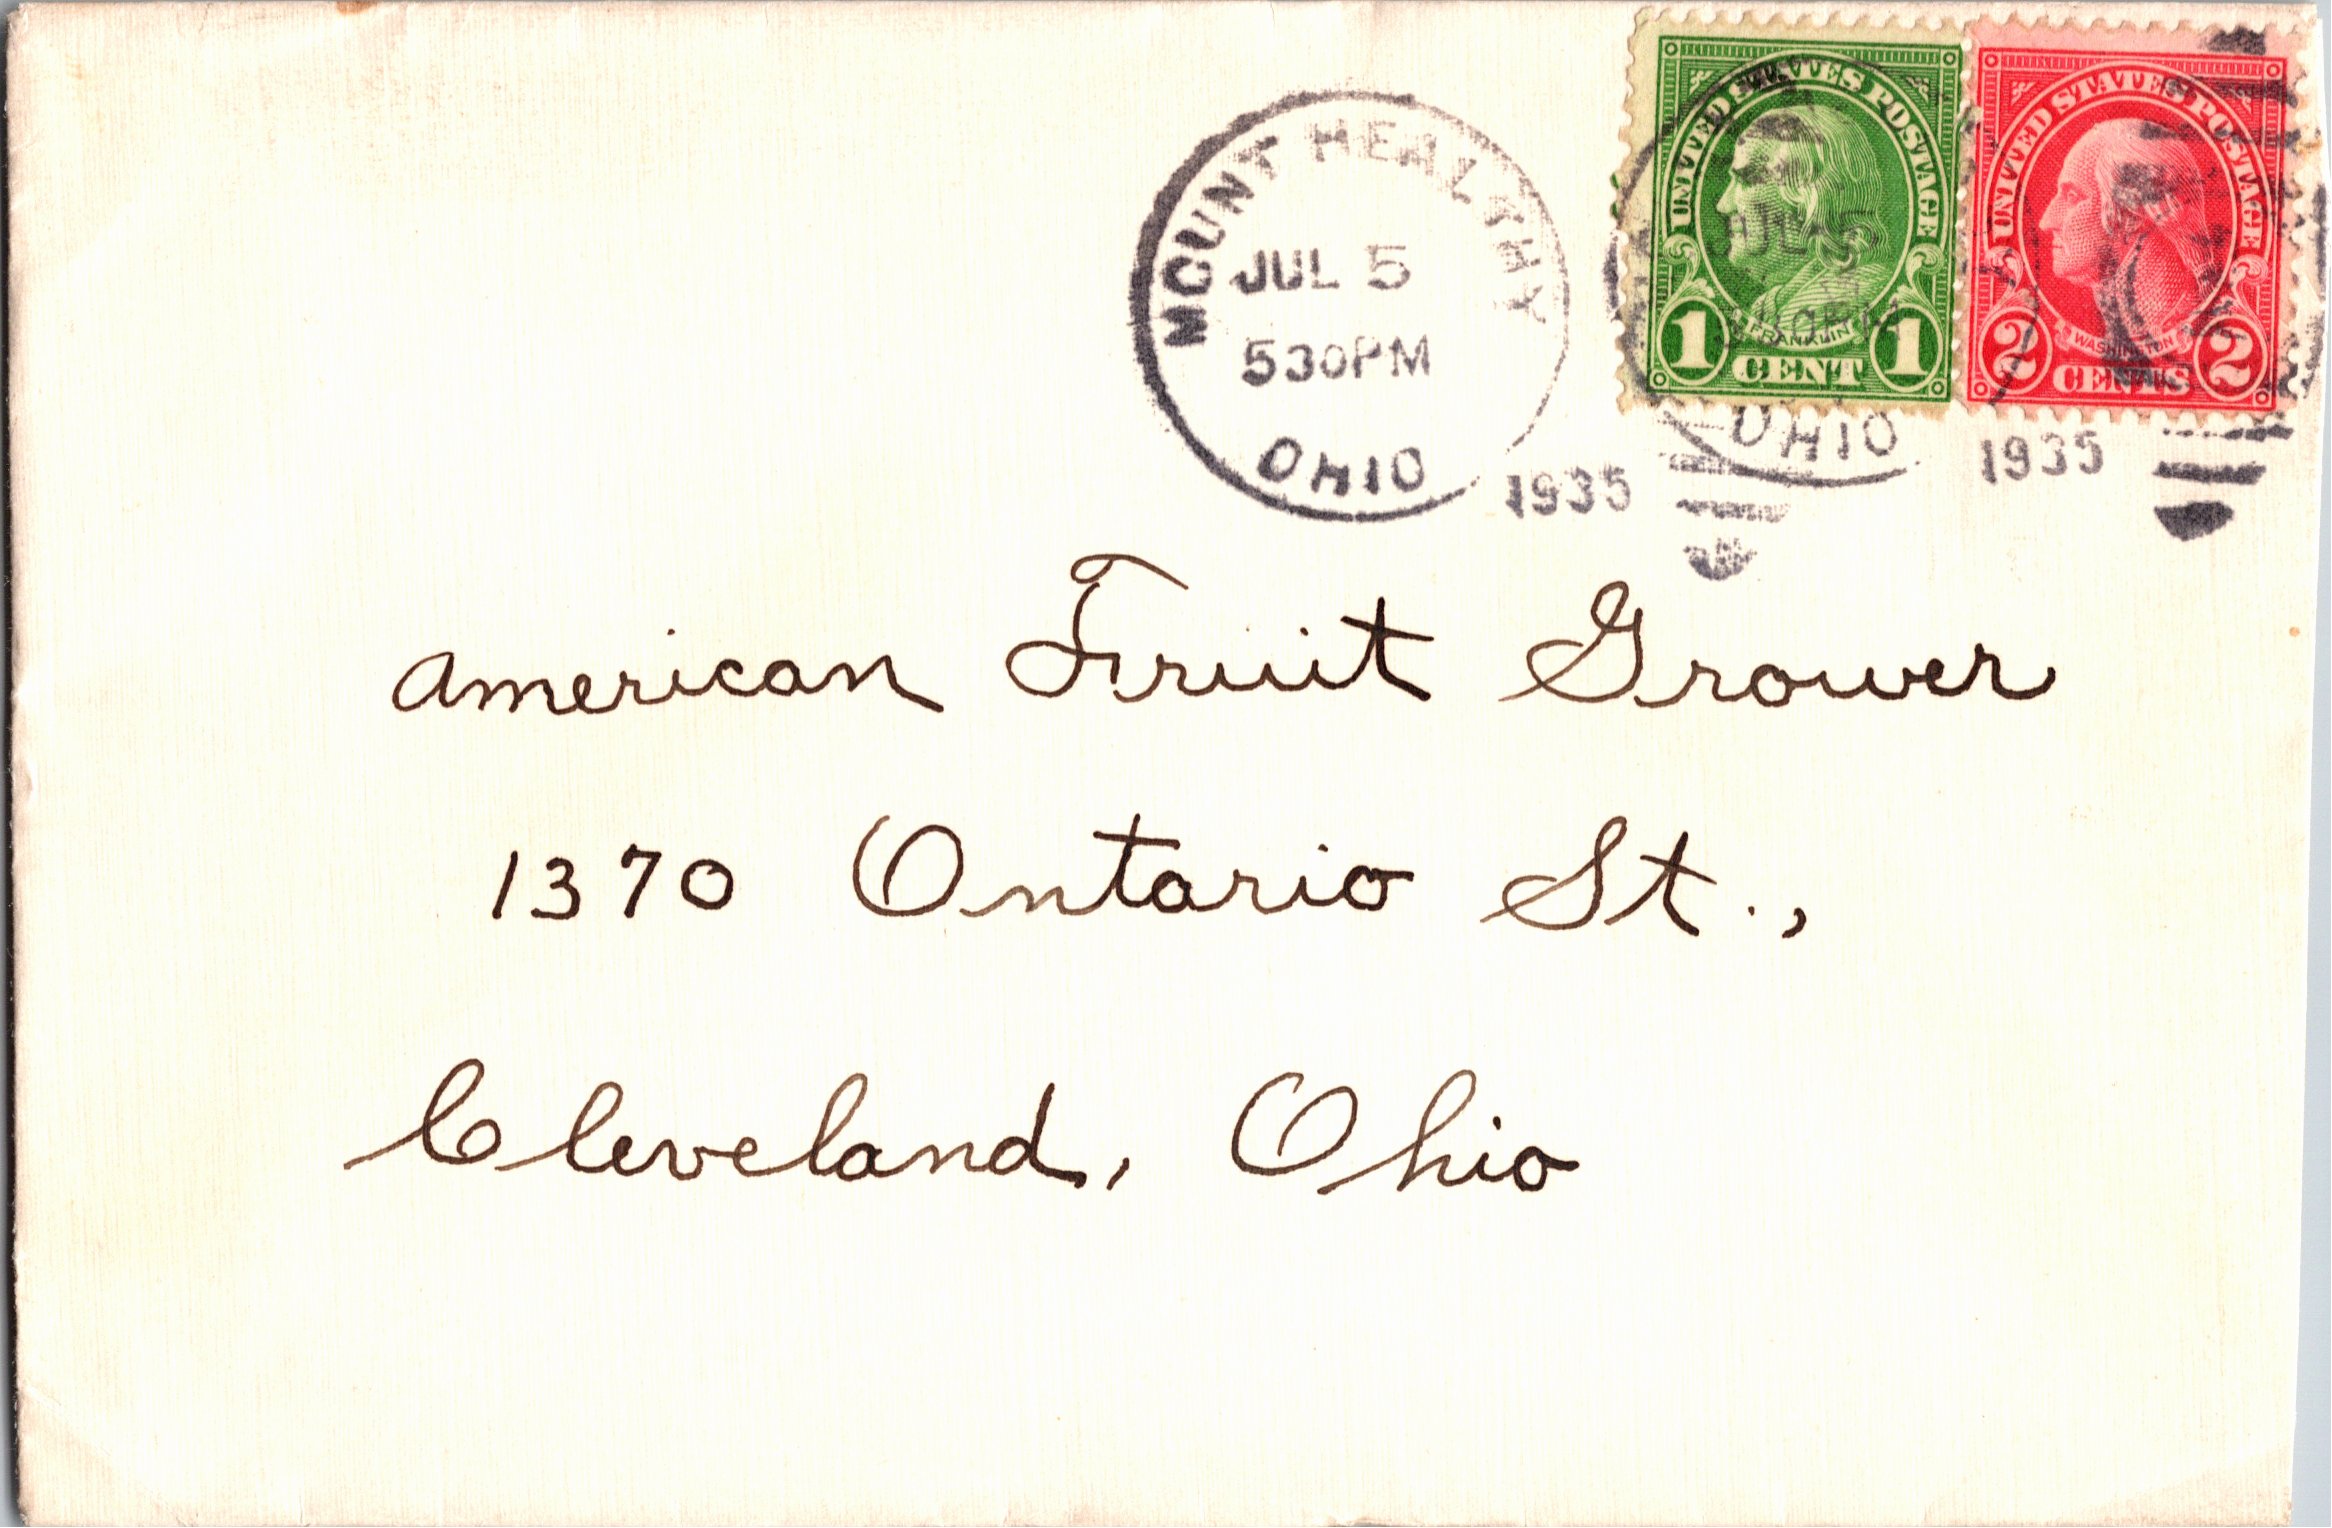 MOUNT HEALTHY
JUL 5
530PM
OHIO
1935
UNITED STATES POSTAGE
JUL 5
FRANKLIN
1 CENT 1
OHIO
1935
UNITED STATES POSTAGE
WASHINGTON
2 CENTS 2
American Fruit Grower
1370 Ontario St.,
Cleveland, Ohio